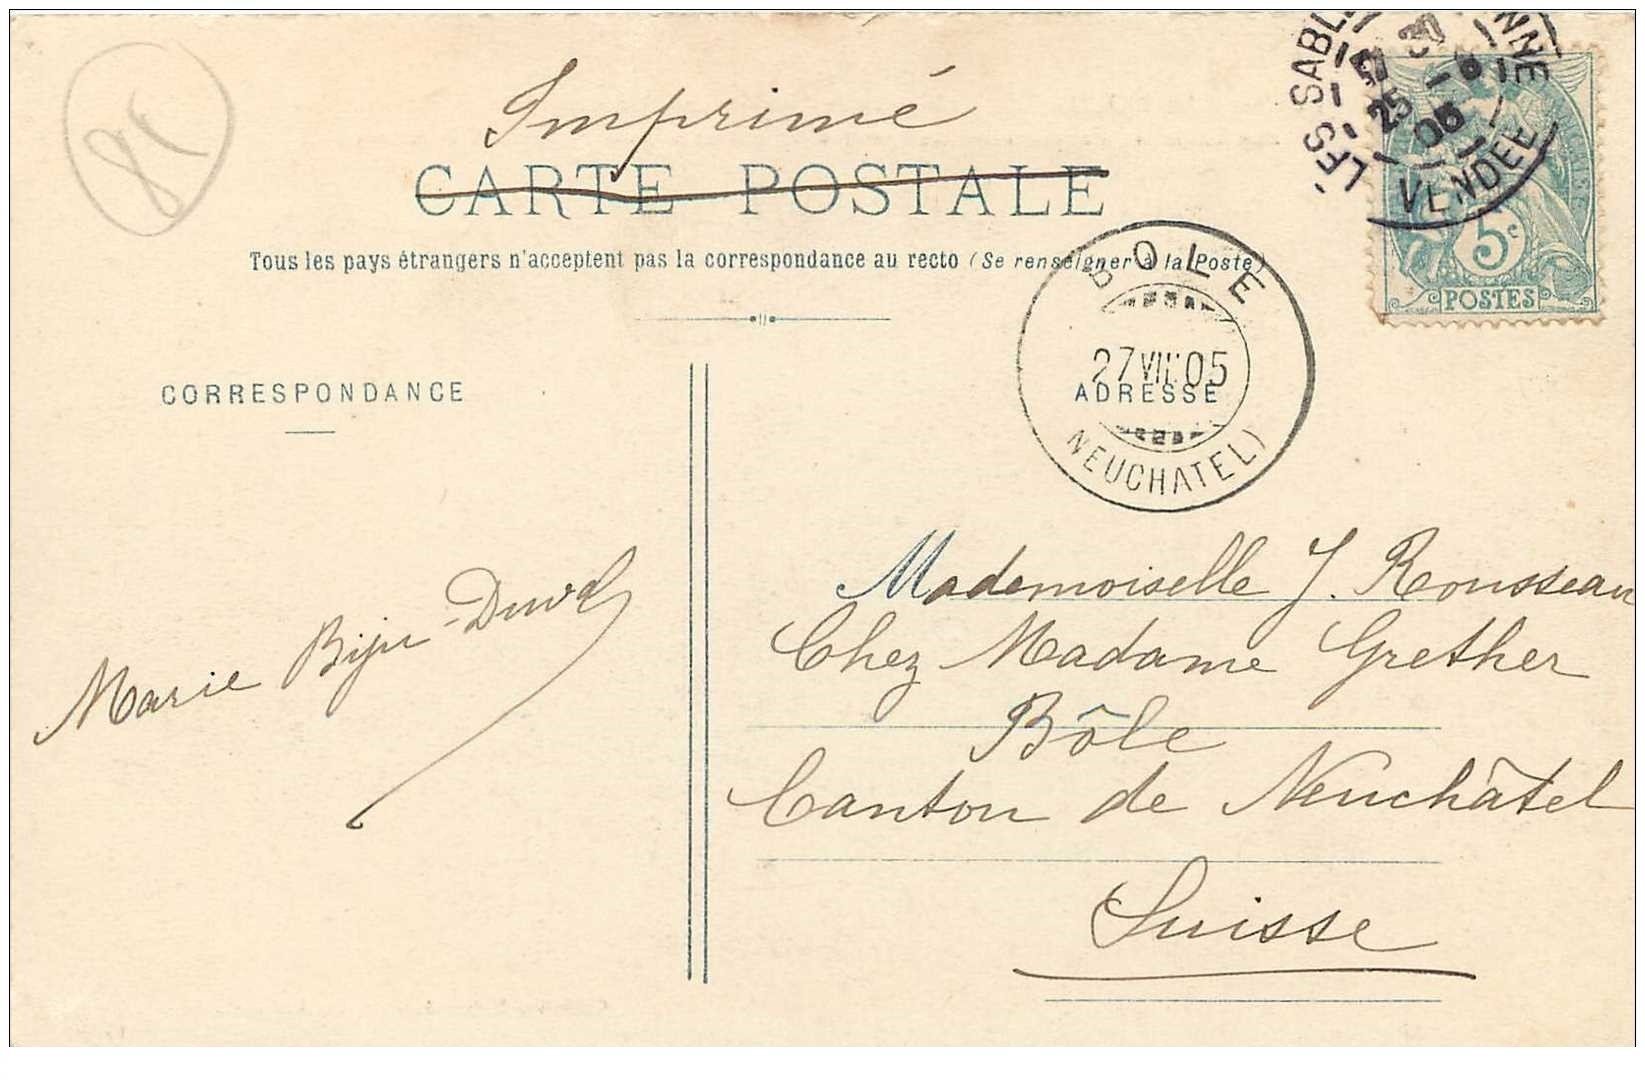 85
Imprimé
CARTE POSTALE
Tous les pays étrangers n'acceptent pas la correspondance au recto (Se renseigner à la Poste)
CORRESPONDANCE
ADRESSE
BOLE
27 VIII 05
(NEUCHATEL)
LES SABL NNE
30
25 -8
05
VENDEE
5c
POSTES
Marie Biju-Duval
Mademoiselle J. Rousseau
Chez Madame Grether
Bôle
Canton de Neuchâtel
Suisse